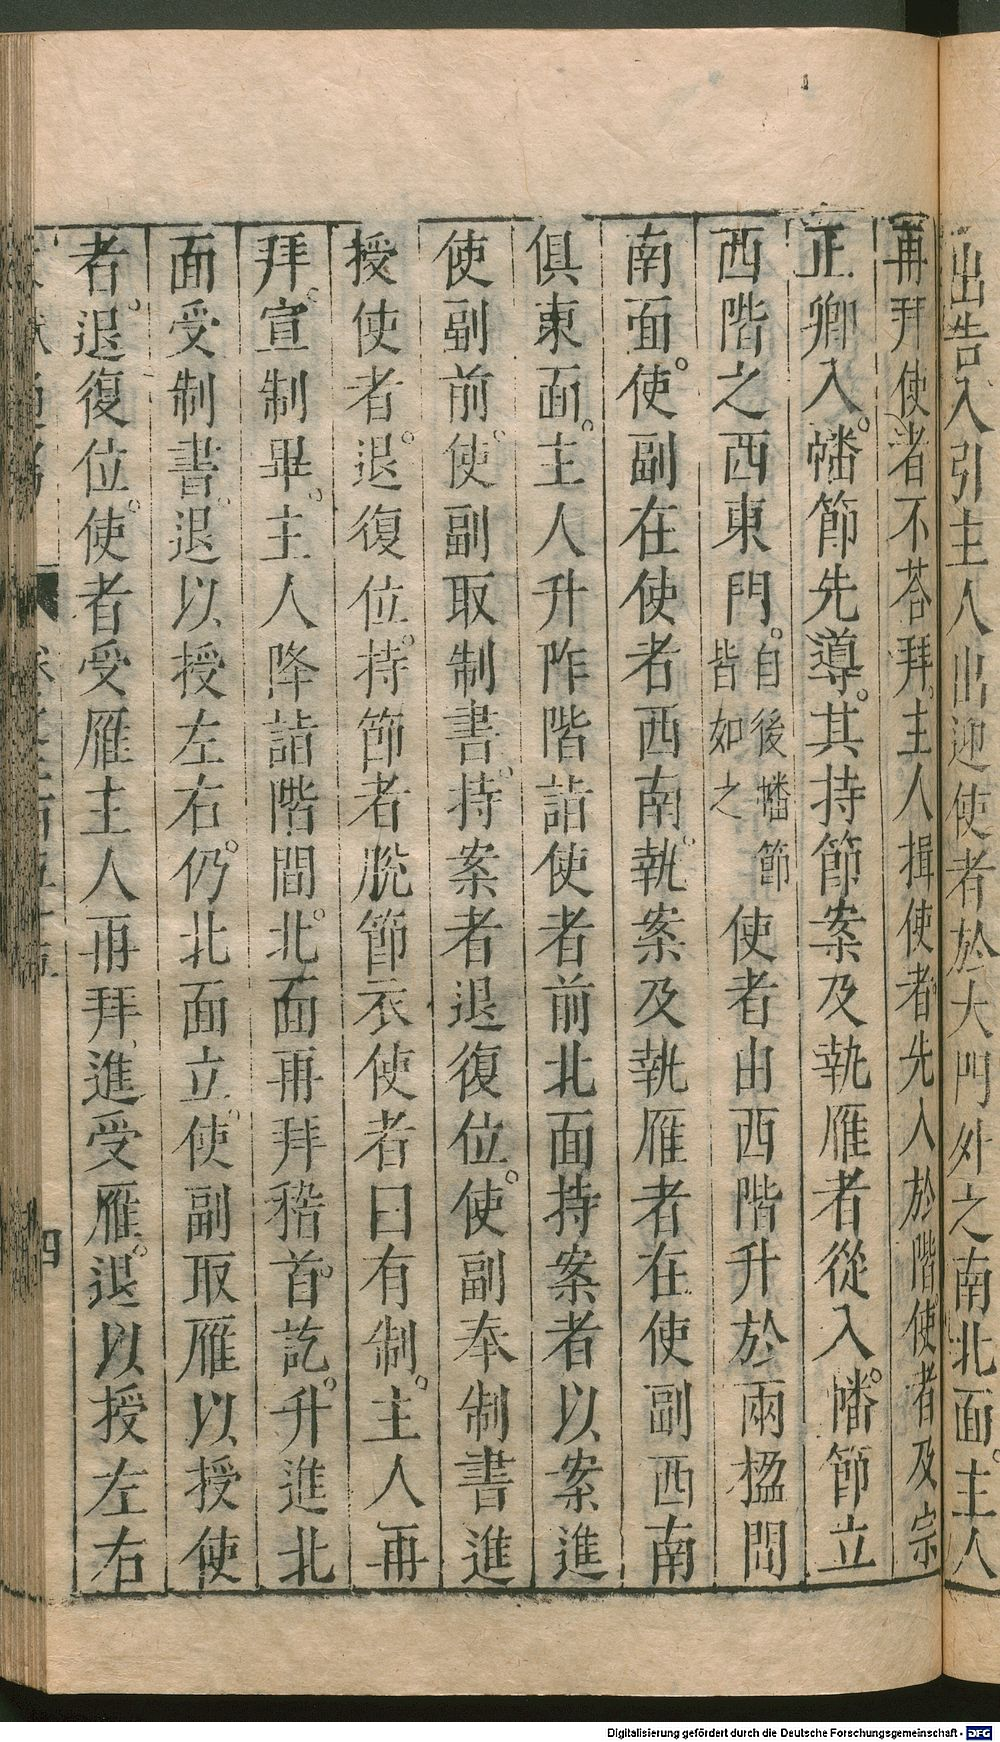 出告入引主人出迎使者於大門外之南北面。主人
再拜使者不荅拜。主人揖使者。先入於階使者及宗
正卿入。幡節先導。其持節案及執雁者從入。幡節立
西階之西東門。自後幡節皆如之使者由西階升於兩楹間
南面。使副在使者西南。執案及執雁者在使副西南
俱東面。主人升阼階詣使者前北面持案者以案進
使副前。使副取制書。持案者退復位。使副奉制書進
授使者。退復位。持節者脫節衣使者曰有制。主人再
拜。宣制畢。主人降詣階間。北面再拜稽首。訖。升進北
面受制書。退以授左右。仍北面立。使副取雁以授使
者。退復位。使者受雁主人再拜。進受雁。退以授左右
四
Digitalisierung gefördert durch die Deutsche Forschungsgemeinschaft - DFG